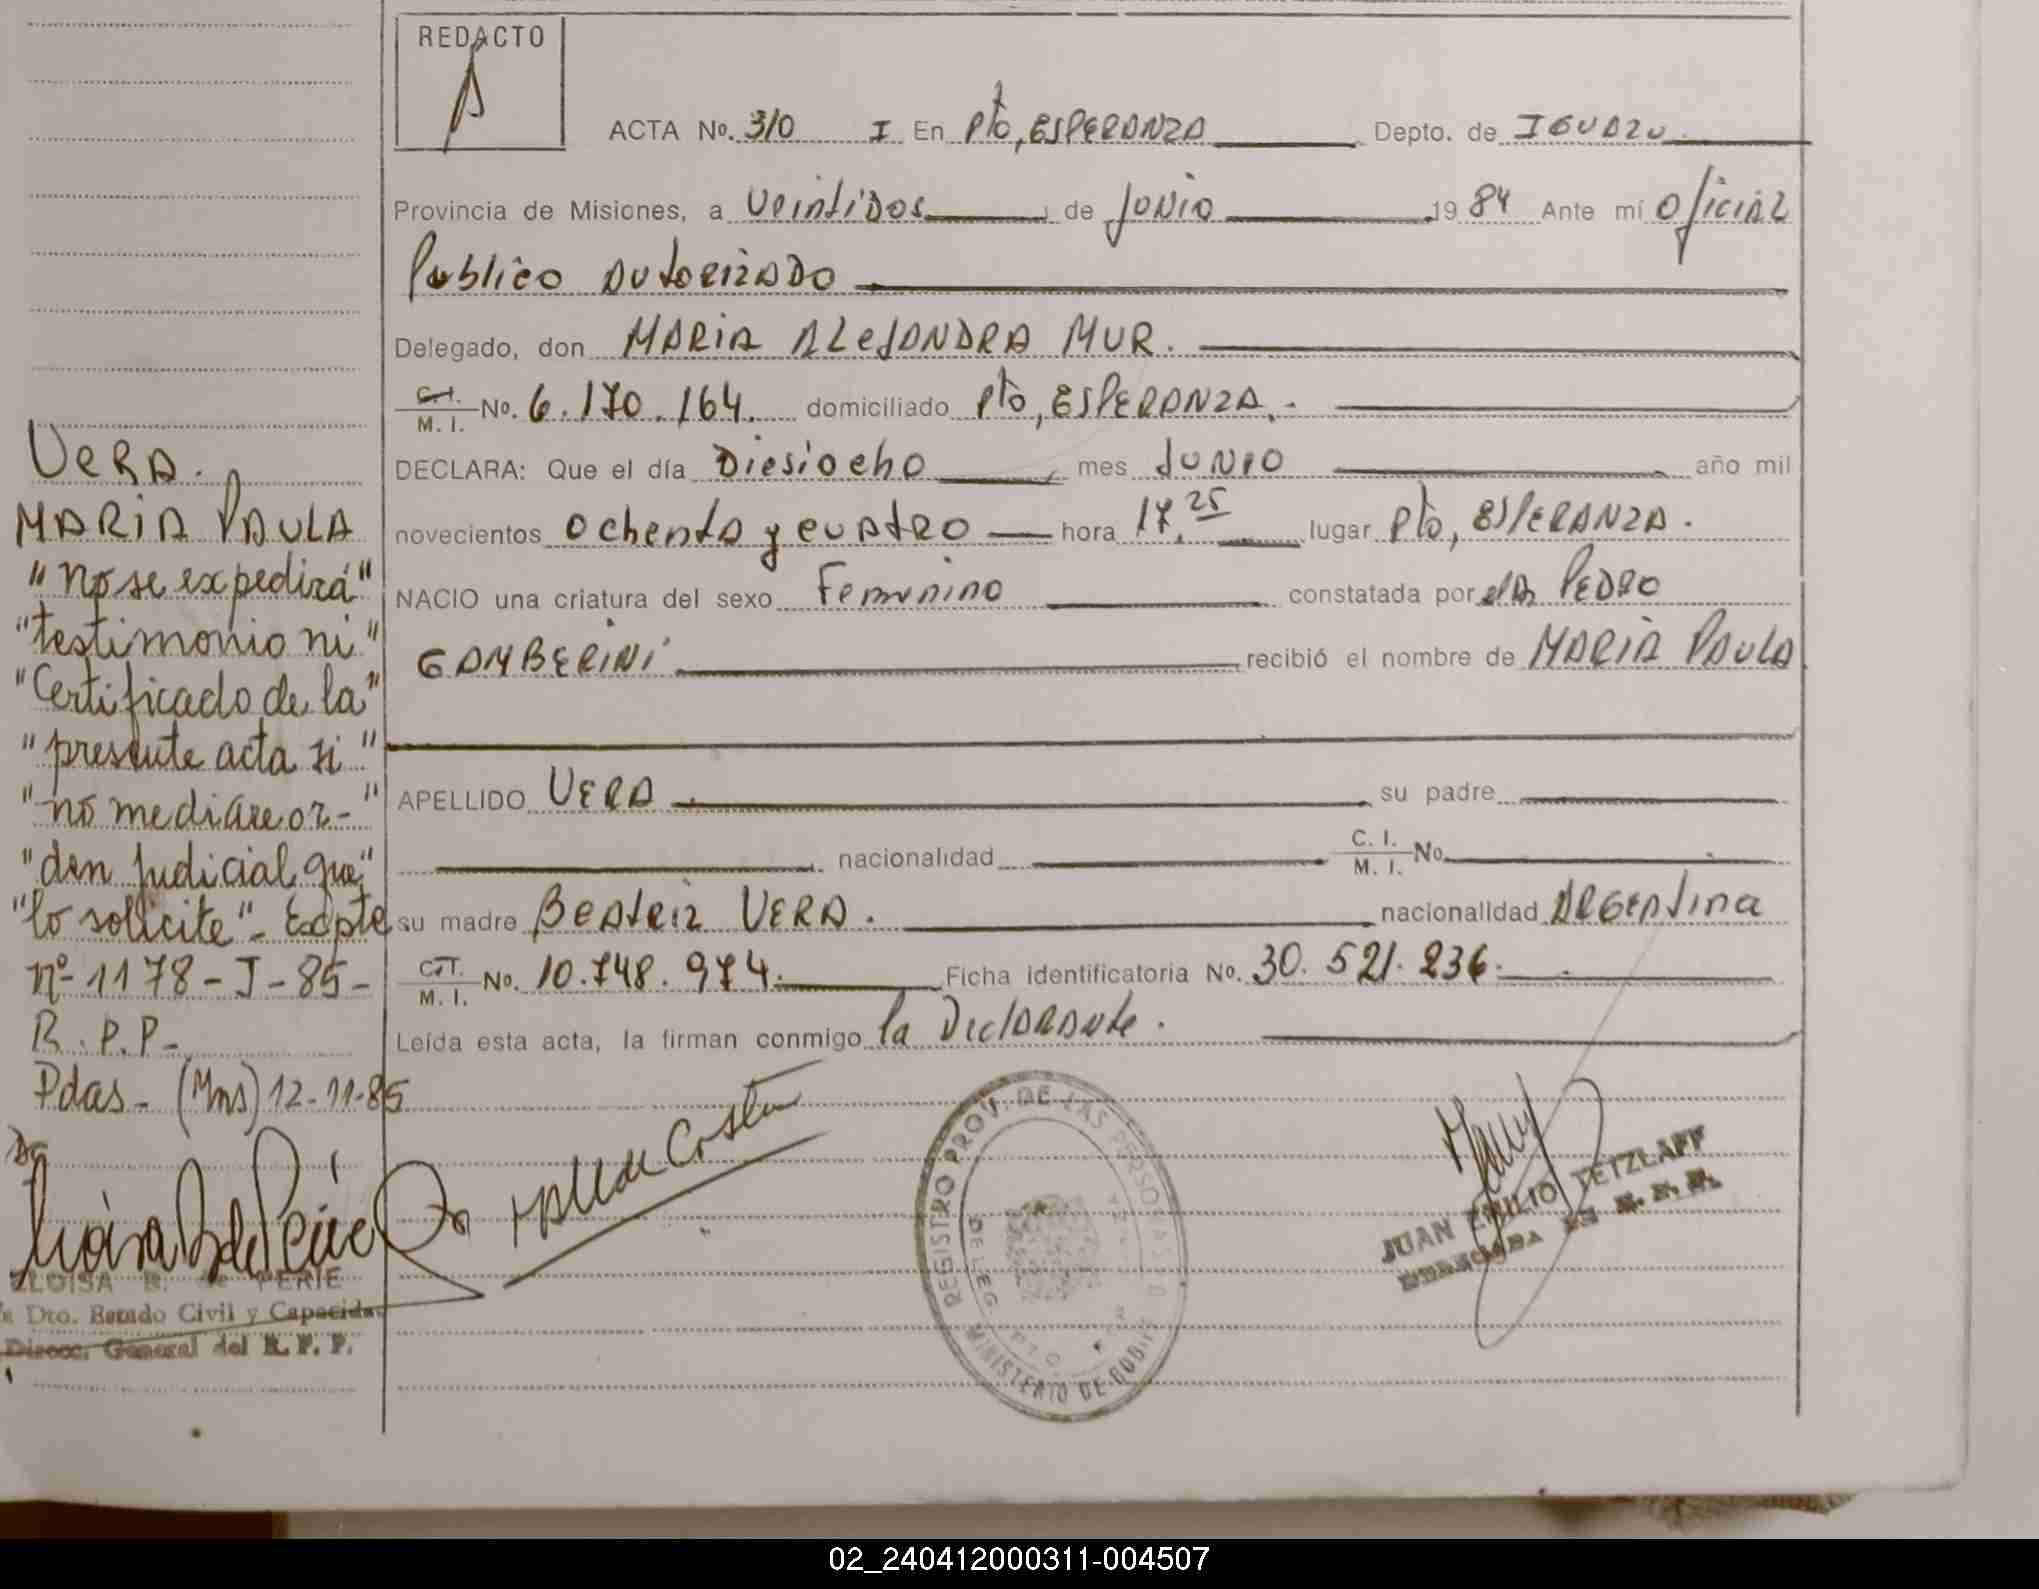 REDACTO
ACTA No. 310 I En Pto, ESPERANZA Depto. de IGUAZU
Provincia de Misiones, a Veintidos de Junio 19 84 Ante mí Oficial
Publico Autorizado
Delegado, don MARIA ALEJANDRA MUR.
C. I.
M. I. No. 6.170.164. domiciliado Pto, ESPERANZA.-
DECLARA: Que el día Diesiocho mes JUNIO año mil
novecientos Ochenta y cuatro hora 17,25 lugar Pto, ESPERANZA.
NACIO una criatura del sexo Femenino constatada por PEDRO
GAMBERINI recibió el nombre de MARIA PAULA
APELLIDO VERA su padre
nacionalidad C. I. M. I. No.
su madre Beatriz VERA. nacionalidad ARGENtina
C. I.
M. I. No. 10.748.974. Ficha identificatoria No. 30.521.236.
Leída esta acta, la firman conmigo la Declarante.
VERA.
MARIA PAULA
"No se expedirá"
"testimonio ni"
"Certificado de la"
"presente acta si"
"no mediare or-"
"den judicial que"
"lo solicite"- Expte
nº 1178-J-85-
R.P.P-
Pdas- (Mns) 12-11-85
ELOISA B. de PERIE
Dto. Estado Civil y Capacidad
Direcc. General del R. P. P.
REGISTRO PROV. DE LAS PERSONAS
DELEG. PTO.
MINISTERIO DE GOBIE
JUAN EMILIO TETZLAFF
02_240412000311-004507